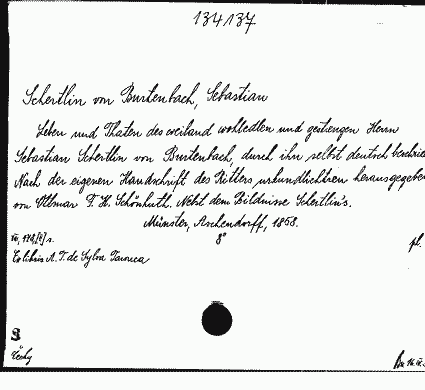 134137
Schertlin von Burtenbach, Sebastian
Leben und Thaten des weiland wohledlen und gestrengen Herrn
Sebastian Schertlin von Burtenbach, durch ihn selbst deutsch beschrie
Nach der eigenen Handschrift des Ritters urkundlichtreu herausgegeben
von Ottmar F. H. Schönhuth. Nebst dem Bildnisse Schertlin's.
Münster, Aschendorff, 1858.
8°
pl.
Exlibris A. T. de Sylva Tarouca
Čechy